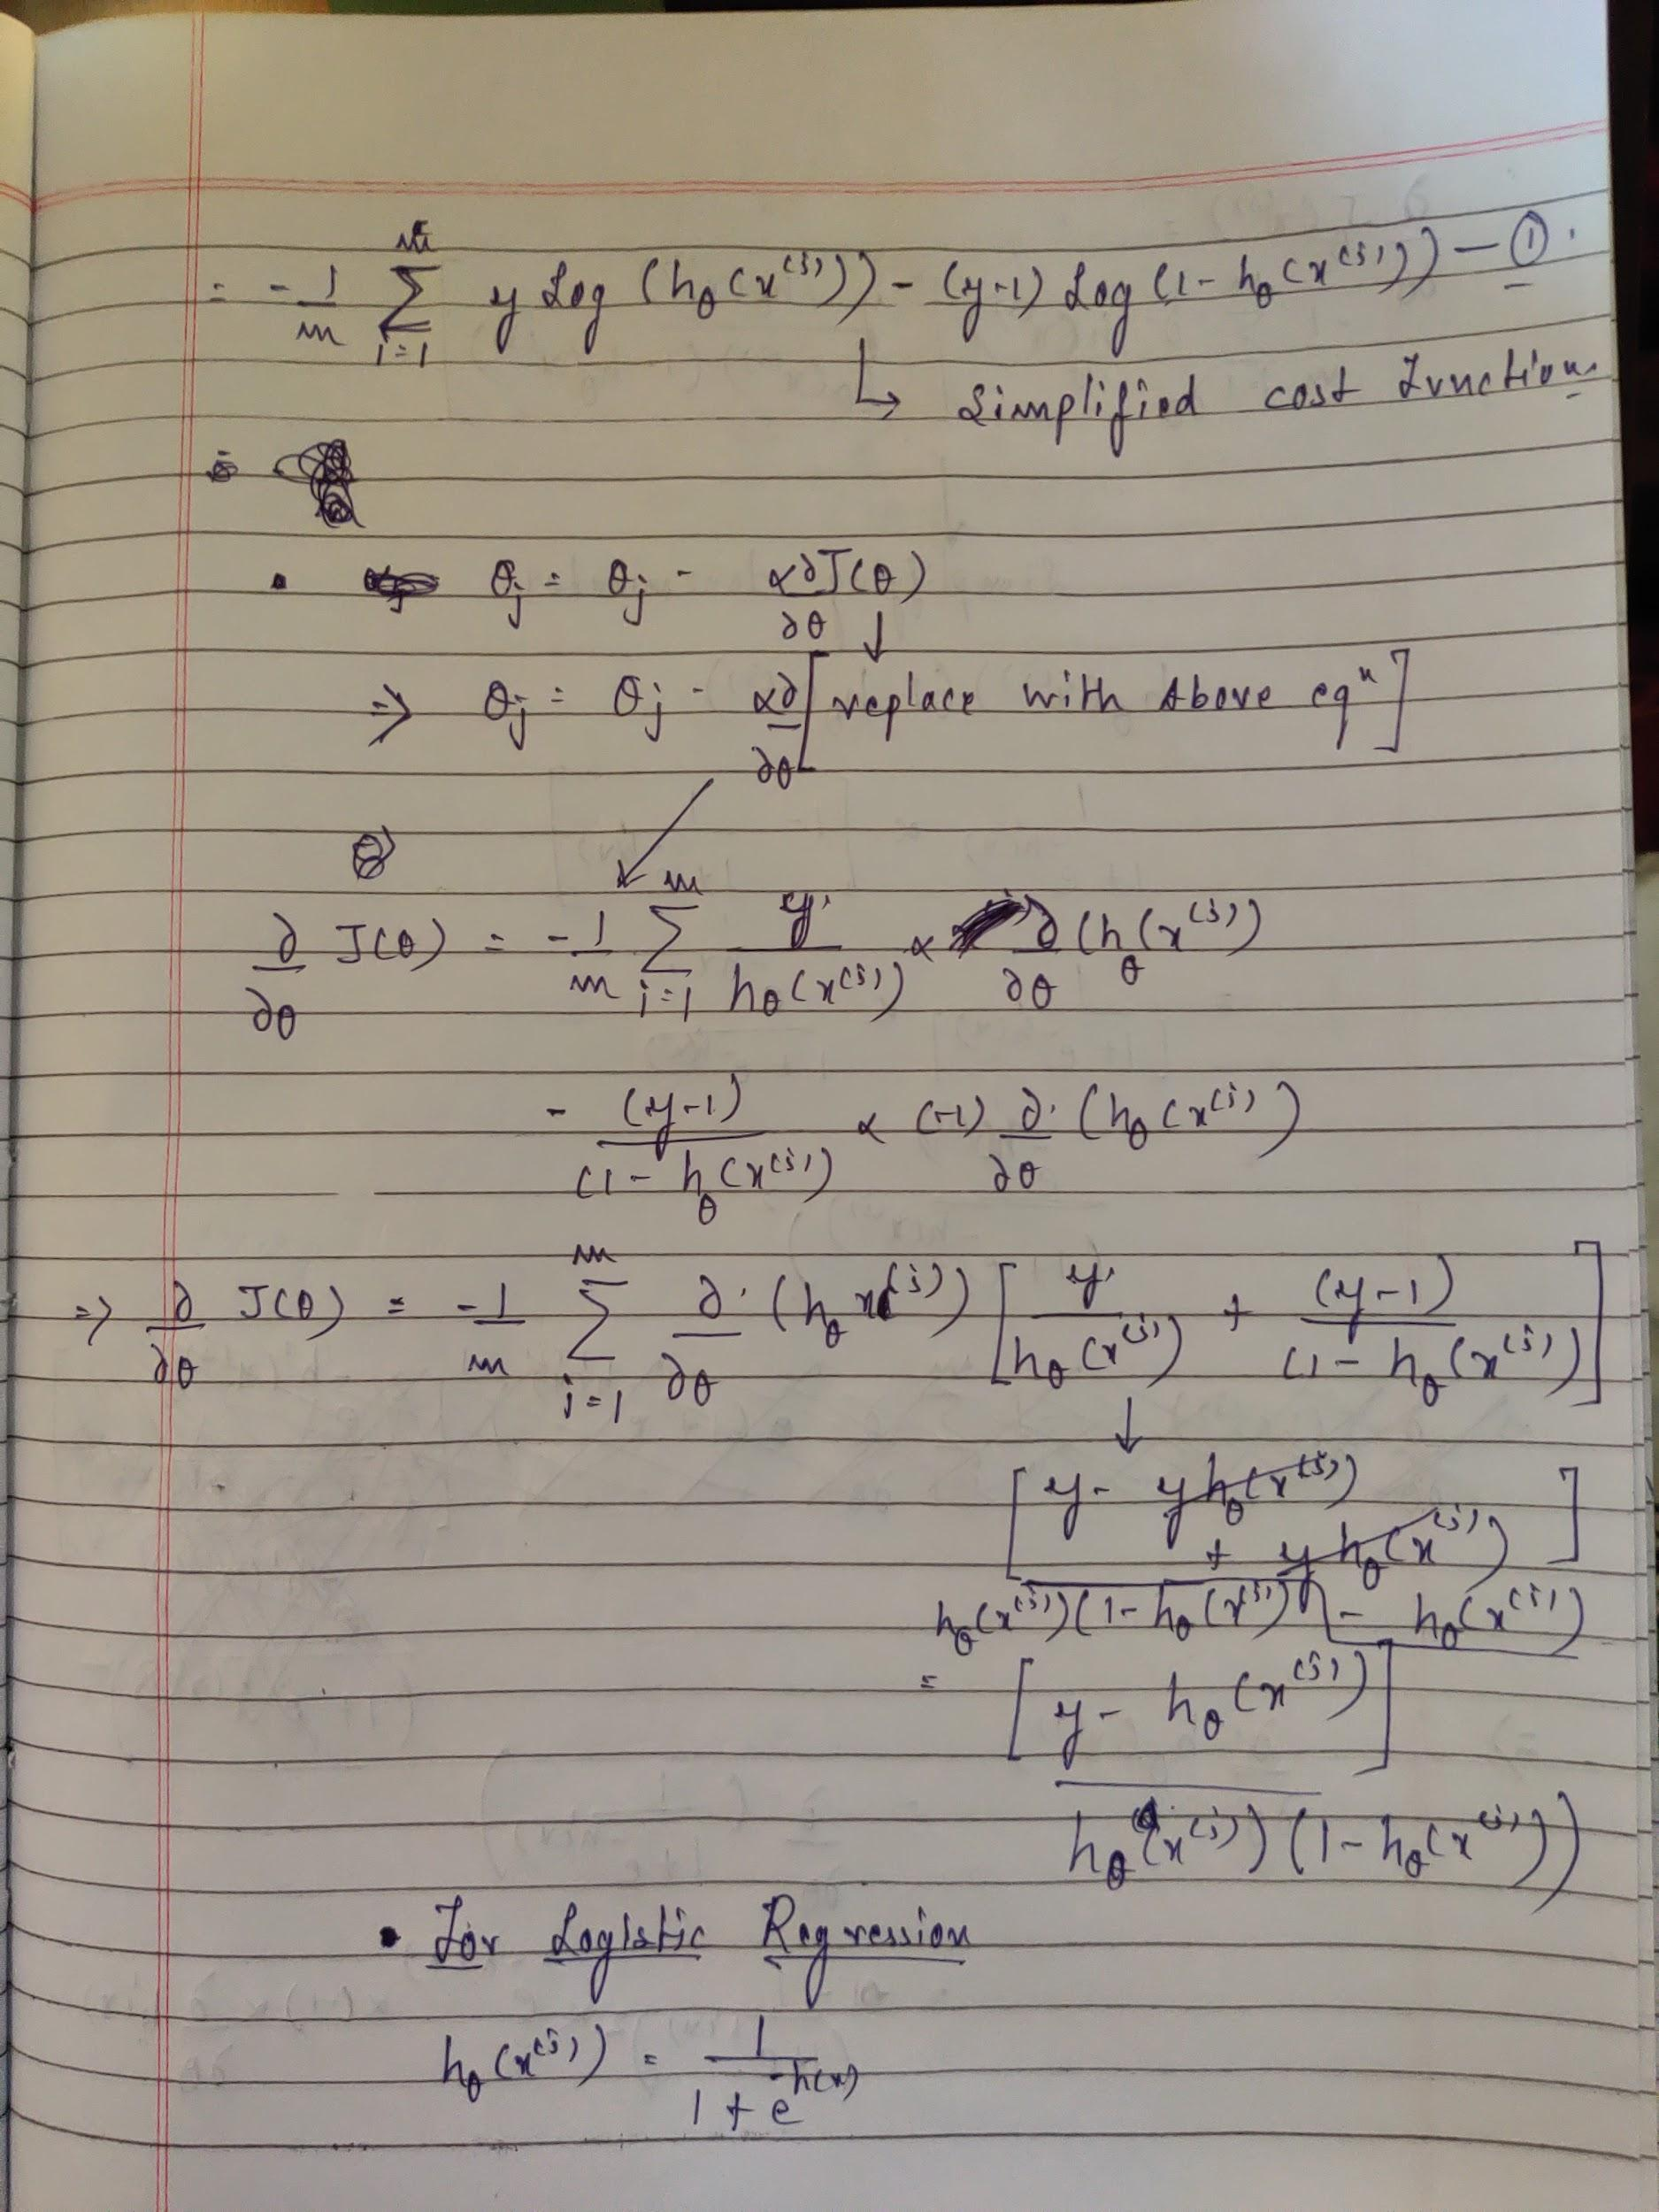 = - 1/m Σ_{i=1}^{m} y Log (hθ(x⁽ⁱ⁾)) - (y-1) Log (1 - hθ(x⁽ⁱ⁾)) — ①.
↳ Simplified cost function.
• θj = θj - α∂J(θ)/∂θ ↓
⇒ θj = θj - α∂/∂θ [replace with Above eqⁿ]
∂/∂θ J(θ) = - 1/m Σ_{i=1}^{m} y/hθ(x⁽ⁱ⁾) × ∂/∂θ (hθ(x⁽ⁱ⁾)
- (y-1)/(1 - hθ(x⁽ⁱ⁾) × (-1) ∂/∂θ (hθ(x⁽ⁱ⁾)
⇒ ∂/∂θ J(θ) = -1/m Σ_{i=1}^{m} ∂/∂θ (hθ x⁽ⁱ⁾) [y/hθ(x⁽ⁱ⁾) + (y-1)/(1 - hθ(x⁽ⁱ⁾)]
↓
[y - yhθ(x⁽ⁱ⁾)
+ yhθ(x⁽ⁱ⁾)]
hθ(x⁽ⁱ⁾)(1 - hθ(x⁽ⁱ⁾) - hθ(x⁽ⁱ⁾)
= [y - hθ(x⁽ⁱ⁾)]
hθ(x⁽ⁱ⁾)(1 - hθ(x⁽ⁱ⁾))
• For Logistic Regression
hθ(x⁽ⁱ⁾) = 1/(1 + e^{-h(x)})